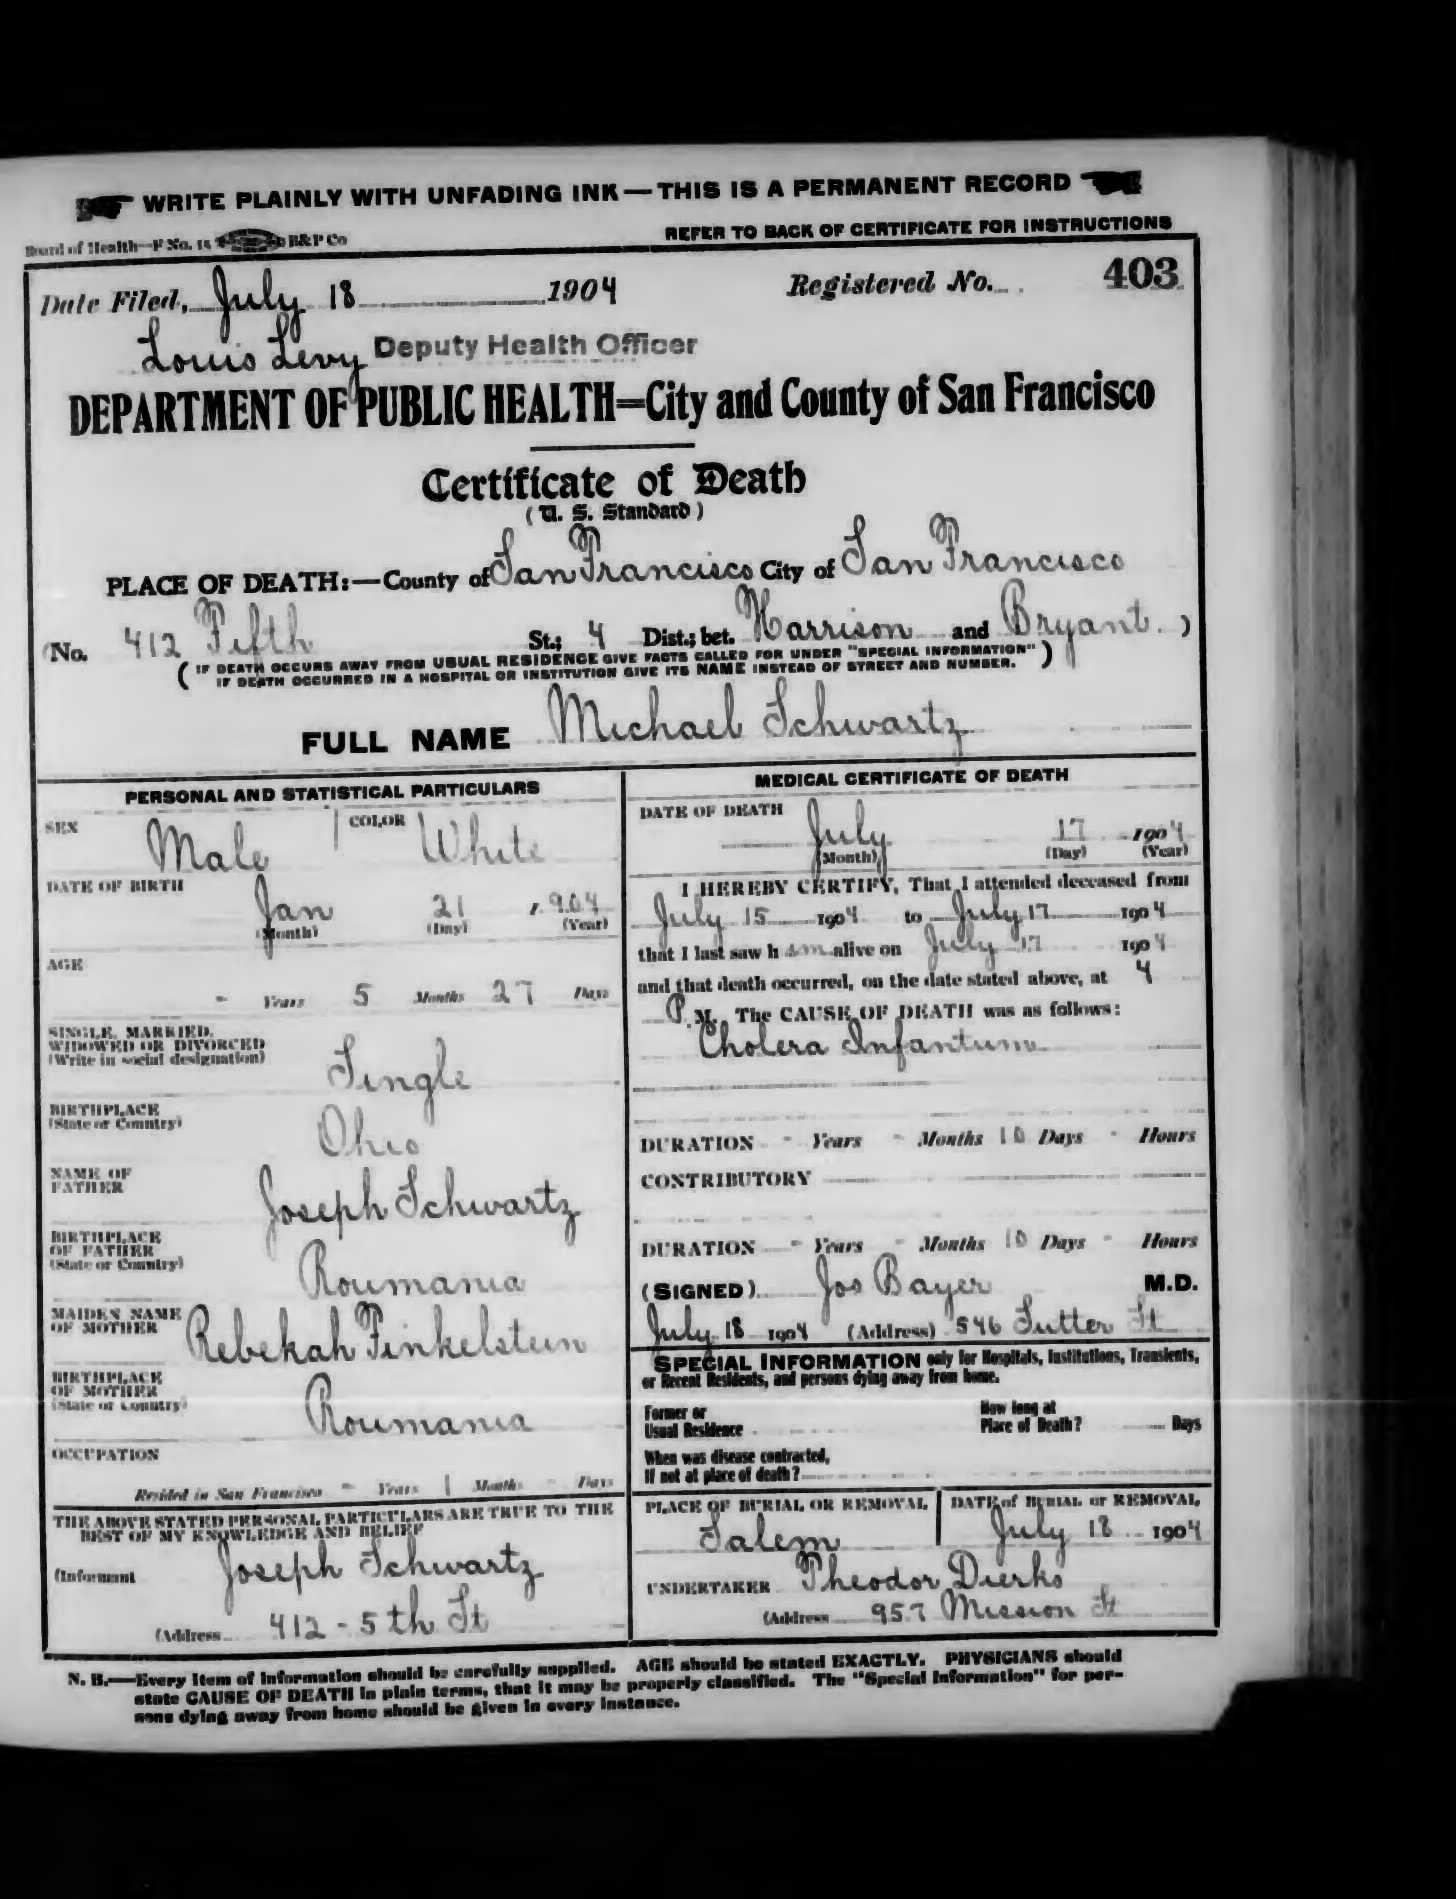 WRITE PLAINLY WITH UNFADING INK — THIS IS A PERMANENT RECORD
Board of Health—F No. 15 B&P Co
REFER TO BACK OF CERTIFICATE FOR INSTRUCTIONS
Date Filed, July 18 1904 Registered No. 403
Louis Levy Deputy Health Officer
DEPARTMENT OF PUBLIC HEALTH=City and County of San Francisco
Certificate of Death
(U. S. Standard)
PLACE OF DEATH:—County of San Francisco City of San Francisco
(No. 412 Fifth St.; 4 Dist.; bet. Harrison and Bryant )
( IF DEATH OCCURS AWAY FROM USUAL RESIDENCE GIVE FACTS CALLED FOR UNDER "SPECIAL INFORMATION" )
IF DEATH OCCURRED IN A HOSPITAL OR INSTITUTION GIVE ITS NAME INSTEAD OF STREET AND NUMBER.
FULL NAME Michael Schwartz
PERSONAL AND STATISTICAL PARTICULARS
SEX Male COLOR White
DATE OF BIRTH
Jan 21 1904
(Month) (Day) (Year)
AGE
- Years 5 Months 27 Days
SINGLE, MARRIED,
WIDOWED OR DIVORCED
(Write in social designation) Single
BIRTHPLACE
(State or Country) Ohio
NAME OF
FATHER Joseph Schwartz
BIRTHPLACE
OF FATHER
(State or Country) Roumania
MAIDEN NAME
OF MOTHER Rebekah Finkelstein
BIRTHPLACE
OF MOTHER
(State or Country) Roumania
OCCUPATION
Resided in San Francisco - Years 1 Months - Days
THE ABOVE STATED PERSONAL PARTICULARS ARE TRUE TO THE
BEST OF MY KNOWLEDGE AND BELIEF
(Informant Joseph Schwartz
(Address 412 - 5th St
MEDICAL CERTIFICATE OF DEATH
DATE OF DEATH
July 17 1904
(Month) (Day) (Year)
I HEREBY CERTIFY, That I attended deceased from
July 15 1904 to July 17 1904
that I last saw h im alive on July 17 1904
and that death occurred, on the date stated above, at 4
P. M. The CAUSE OF DEATH was as follows:
Cholera Infantum
DURATION - Years - Months 10 Days - Hours
CONTRIBUTORY
DURATION - Years - Months 10 Days - Hours
(SIGNED) Jos Bayer M.D.
July 18 1904 (Address) 546 Sutter St
SPECIAL INFORMATION only for Hospitals, Institutions, Transients,
or Recent Residents, and persons dying away from home.
Former or
Usual Residence
How long at
Place of Death? Days
When was disease contracted,
If not at place of death?
PLACE OF BURIAL OR REMOVAL DATE of BURIAL or REMOVAL
Salem July 18 1904
UNDERTAKER Theodor Dierks
(Address 957 Mission St
N. B.—Every item of information should be carefully supplied. AGE should be stated EXACTLY. PHYSICIANS should
state CAUSE OF DEATH in plain terms, that it may be properly classified. The "Special Information" for per-
sons dying away from home should be given in every instance.